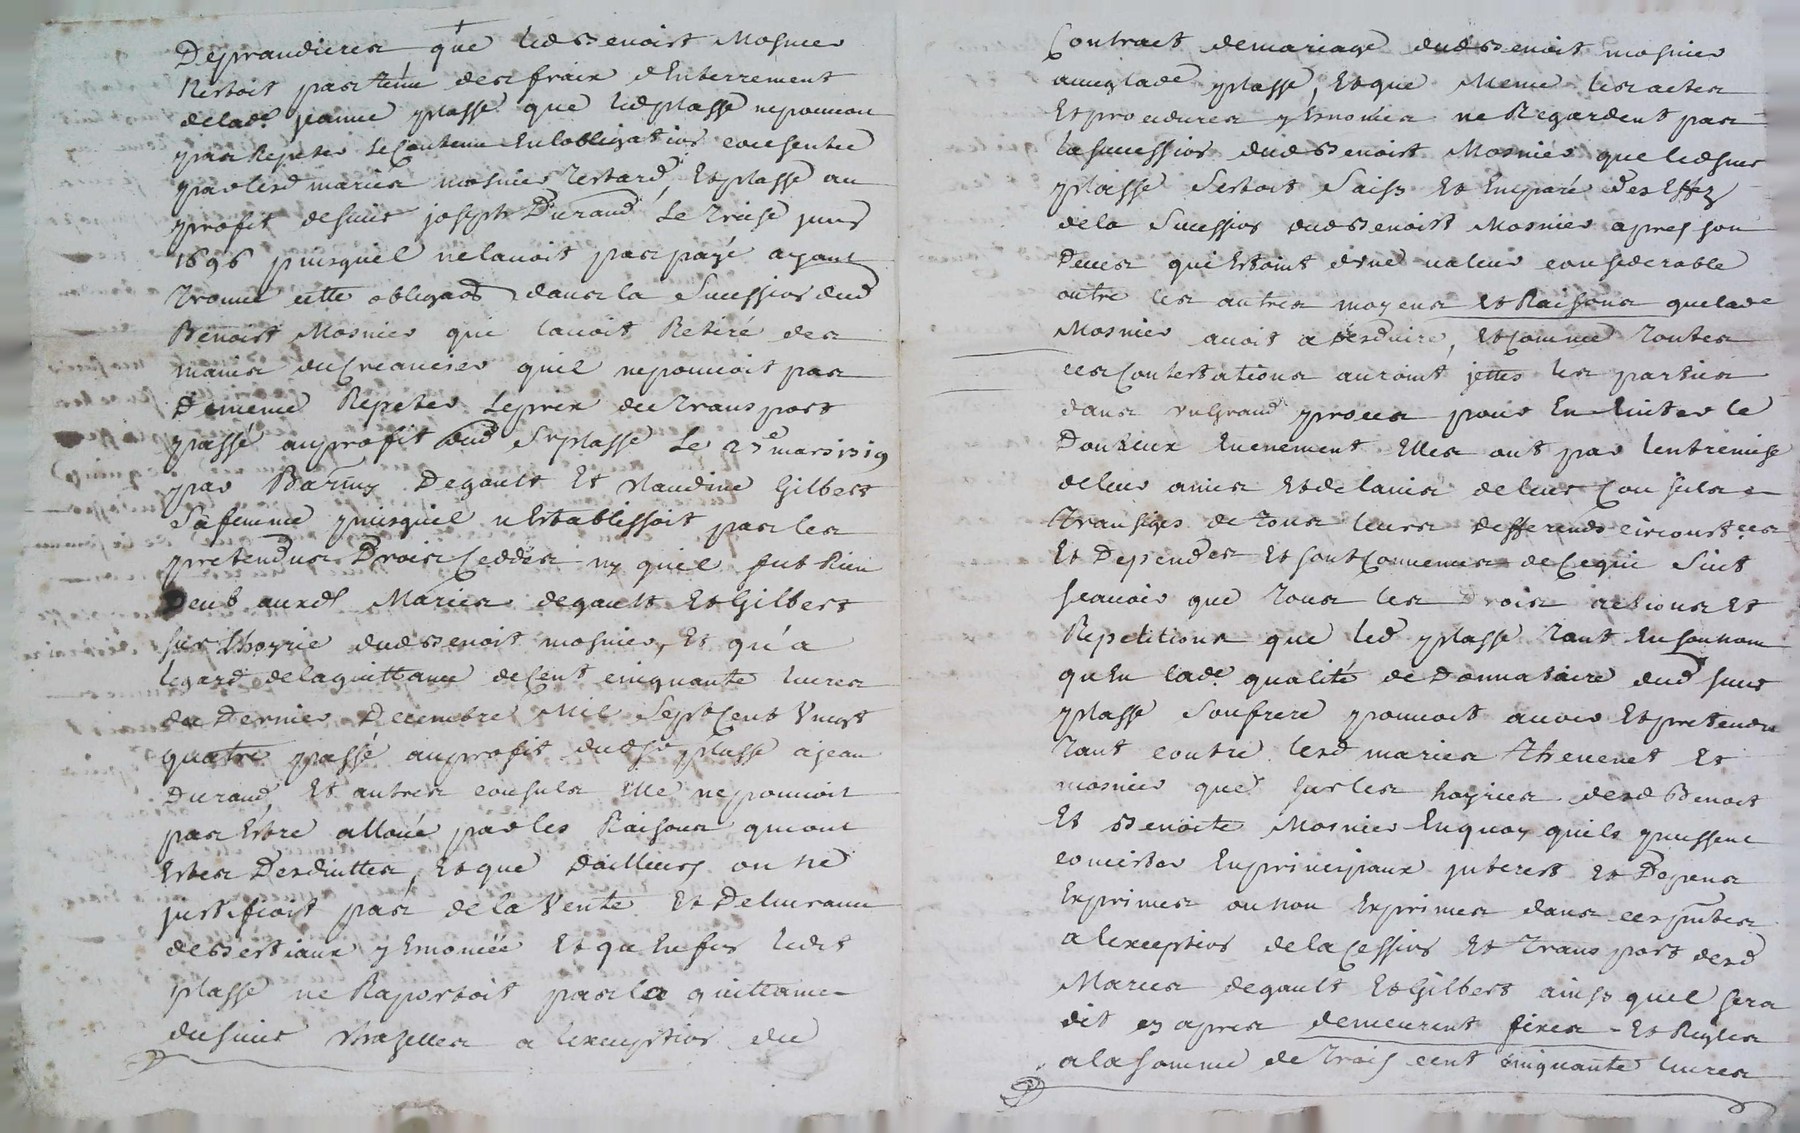 Deprandieres que led Benoist Mosnier
Restoit pas tenu des fraix d'Enterrement
delade jeanne plasse que led plasse ne pouvou
pas Repeter le Contenu En lobligation consentie
par lesd mariés mosnier Restard, Et plasse au
profit defunt joseph Durand le treise juin
1696 puisquil ne lavoit pas payé ayant
trouvé cette obligaon dans la Sucession dud
Benoist Mosnier qui lavoit Retiré des
mains du Creancier quil ne pouvoit pas
De meme Repeter le prix du transport
passé au profit dud Sr plasse Le 27e mars 1719
par Degoult Et Claudine Gilbert
Sa femme puisquil nEstablissoit pas les
pretendus Drois Ceddés ny quil fut Rien
Deub auxd Mariés degoult Et Gilbert
sur Lhoyrie dud Benoit mosnier, Et qu'a
legard dela quittance de Cent cinquante livres
du Dernier Decembre Mil Sept Cent Vingt
quatre passé au profit dud Sr plasse a jean
Durand, Et autres consuls Elle ne pouvoit
pas Estre alloüée par les Raisons quiont
Estes Desduittes, Et que dailleurs on ne
justifioit pas de la Vente Et Delivrance
de Bestiaux y Enoncée Et qu Enfin ledit
plasse ne Raportoit pas la quittance
du sieur Chazelles a lexception du
Contract de mariage dud Benoit mosnier
avec lade plasse, Et que Meme les actes
Et procedures y Enoncées ne Regardent pas
la sucession dud Benoist Mosnier que led sieur
plasse Sestoit Saisy Et Emparé des Effez
de la Sucession dud Benoist Mosnier apres son
Deces qui Estoint d'une valeur considerable
outre les autres moyens et Raisons que lade
Mosnier avoit a desduire, Et Comme toutes
ces Contestations auroint jettés les parties
dans un Grand proces pour En Eviter le
Douteux Evenement Elles ont par lentremise
de leur amis Et de lavis de leur Conseils
transiges de tous leurs differends circonstces
Et Dependces Et sont Convenues de Ce qui Suit
scavoir que tous les Drois actions Et
Repetitions que led plasse tant En son nom
qu En lade qualité de Donnataire dud sieur
plasse Son frere pouvoit avoir Et pretendre
tant contre lesd mariés thevenet Et
mosnier que sur les hoyries desd Benoit
Et Benoite Mosnier En quoy quils pussent
concister En principaux jnterest Et Depens
Exprimes ou non Exprimes dans ces pntes
a lexception de la Cession Et transport desd
Maries degoult Et Gilbert ainsy quil sera
dit cy apres demeurent fixés Et Reglés
a la somme de trois cent cinquante livres